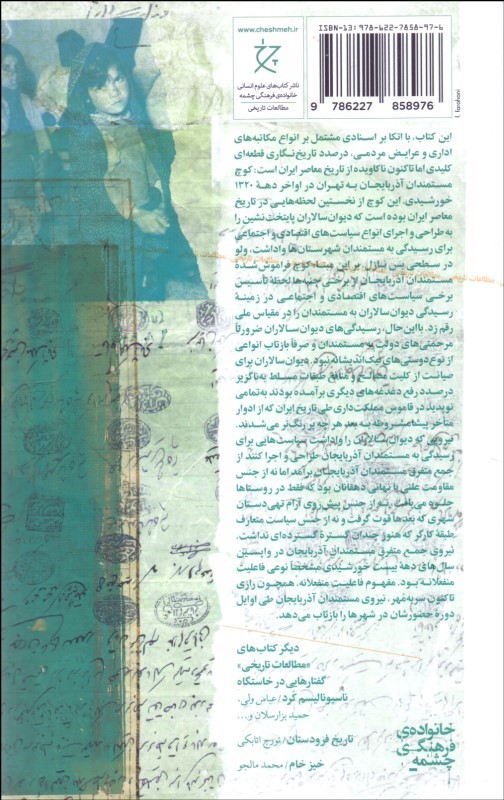 www.cheshmeh.ir
ناشر کتاب‌های علوم انسانی
خانواده‌ی فرهنگی چشمه
مطالعات تاریخی
ISBN-13: 978-622-7858-97-6
9 786227 858976
این کتاب، با اتکا بر اسنادی مشتمل بر انواع مکاتبه‌های
اداری و عرایض مردمی، درصدد تاریخ‌نگاری قطعه‌ای
کلیدی اما تاکنون ناکاویده از تاریخ معاصر ایران است: کوچ
مستمندان آذربایجان به تهران در اواخر دهۀ ۱۳۲۰
خورشیدی. این کوچ از نخستین لحظه‌هایی در تاریخ
معاصر ایران بوده است که دیوان‌سالاران پایتخت‌نشین را
به طراحی و اجرای انواع سیاست‌های اقتصادی و اجتماعی
برای رسیدگی به مستمندان شهرستان‌ها واداشت، ولو
در سطحی بس نازل. بر این مبنا، کوچ فراموش‌شده
مستمندان آذربایجان از برخی جنبه‌ها لحظۀ تأسیس
برخی سیاست‌های اقتصادی و اجتماعی در زمینۀ
رسیدگی دیوان‌سالاران به مستمندان را در مقیاس ملی
رقم زد. بااین‌حال، رسیدگی‌های دیوان‌سالاران ضرورتاً
مرحمتی‌های دولت به مستمندان و صرفاً بازتاب انواعی
از نوع‌دوستی‌های نیک‌اندیشانه نبود. دیوان‌سالاران برای
صیانت از کلیت مصالح و منافع طبقات مسلط به‌ناگزیر
درصدد رفع دغدغه‌های دیگری برآمده بودند به‌تمامی
نوپدید در قاموس مملکت‌داری طی تاریخ ایران که از ادوار
متأخر پیشامشروطه به بعد هر چه پررنگ‌تر می‌شدند.
نیرویی که دیوان‌سالاران را واداشت سیاست‌هایی برای
رسیدگی به مستمندان آذربایجان طراحی و اجرا کنند از
جمع متفرق مستمندان آذربایجان برآمد اما نه از جنس
مقاومت علنی یا نهانی دهقانان بود که فقط در روستاها
جلوه می‌یافت، نه از جنس پیش‌روی آرام تهی‌دستان
شهری که بعدها قوت گرفت و نه از جنس سیاست متعارف
طبقۀ کارگر که هنوز چندان گسترۀ گسترده‌ای نداشت.
نیروی جمع متفرق مستمندان آذربایجان در واپسین
سال‌های دهۀ بیست خورشیدی مشخصاً نوعی فاعلیت
منفعلانه بود. مفهوم فاعلیت منفعلانه، همچون رازی
تاکنون سربه‌مهر، نیروی مستمندان آذربایجان طی اوایل
دورۀ حضورشان در شهرها را بازتاب می‌دهد.
دیگر کتاب‌های
«مطالعات تاریخی»
گفتارهایی در خاستگاه
ناسیونالیسم کُرد/ عباس ولی،
حمید بزارسلان و...
تاریخ فرودستان/ تورج اتابکی
خیز خام/ محمد مالجو
خانواده‌ی
فرهنگی
چشمه